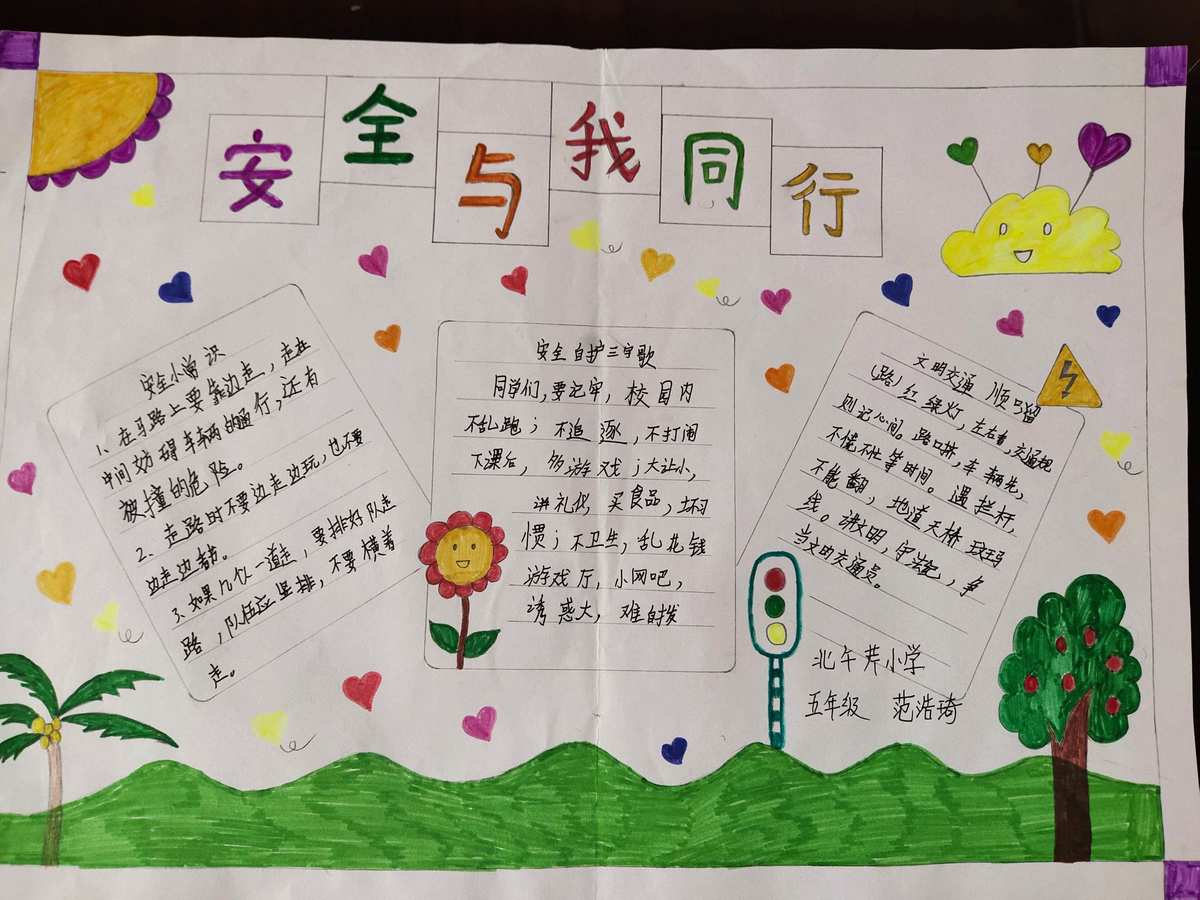 安全与我同行
安全小常识
1、在马路上要靠边走，走在
中间妨碍车辆的通行，还有
被撞的危险。
2、走路时不要边走边玩，也不要
边走边
3、如果几个一道走，要排好队走
路，队伍应竖排，不要横着
走。
安全自护三字歌
同学们，要记牢，校园内
不乱跑；不追逐，不打闹
下课后，多游戏；大让小，
讲礼仪，买食品，坏习
惯；不卫生，乱花钱
游戏厅，小网吧，
诱惑大，难自拔
文明交通 顺口溜
(路)红绿灯，左右看，交通规
则记心间。路口哄，车辆先，
不慌不忙等时间。遇拦杆，
不能翻，地道天桥斑马
线。讲文明，守法纪，争
当文明交通员。
北午芹小学
五年级 范浩琦